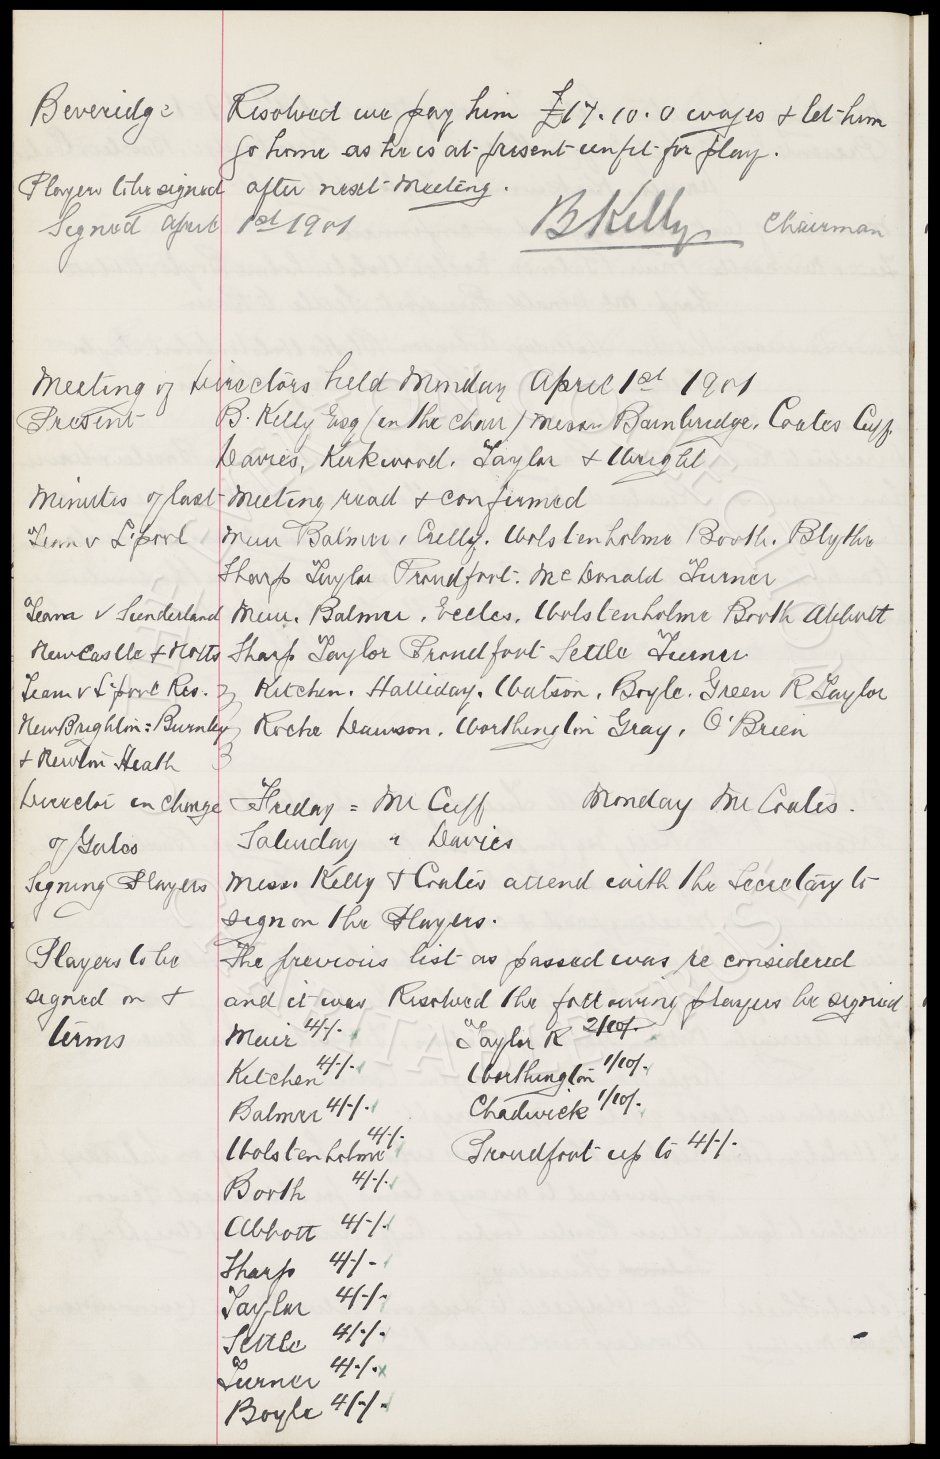 Beveridge Resolved we pay him £17.10.0 wages & let him
go home as he is at present unfit for play.
Players to be signed after next Meeting.
Signed April 1st 1901 B Kelly Chairman
Meeting of Directors held Monday April 1st 1901
Present B. Kelly Esq (in the chair) Messrs Bainbridge. Coates Cuff
Davies, Kirkwood. Taylor & Wright
Minutes of last Meeting read & confirmed
Team v L'pool Muir Balmer, Crelly. Wolstenholme Booth. Blythe
Sharp Taylor Proudfoot. McDonald Turner
Team v Sunderland Muir. Balmer. Eccles. Wolstenholme Booth Abbott
Newcastle & Notts Sharp Taylor Proudfoot Settle Turner
Team v L'pool Res. Kitchen. Halliday. Watson. Boyle. Green R Taylor
New Brighton: Burnley Roche Dawson. Worthington Gray, O'Brien
& Newton Heath
Director in charge Friday = Mr Cuff Monday Mr Coates.
of Gates Saturday " Davies
Signing Players Messrs Kelly & Coates attend with the Secretary to
sign on the Players.
Players to be The previous list as passed was re considered
signed on & and it was Resolved the following players be signed
terms Muir 4/-/- Taylor R 2/10/-
Kitchen 4/-/- Worthington 1/10/-
Balmer 4/-/- Chadwick 1/10/-
Wolstenholme 4/-/- Proudfoot up to 4/-/-
Booth 4/-/-
Abbott 4/-/-
Sharp 4/-/-
Taylor 4/-/-
Settle 4/-/-
Turner 4/-/-
Boyle 4/-/-